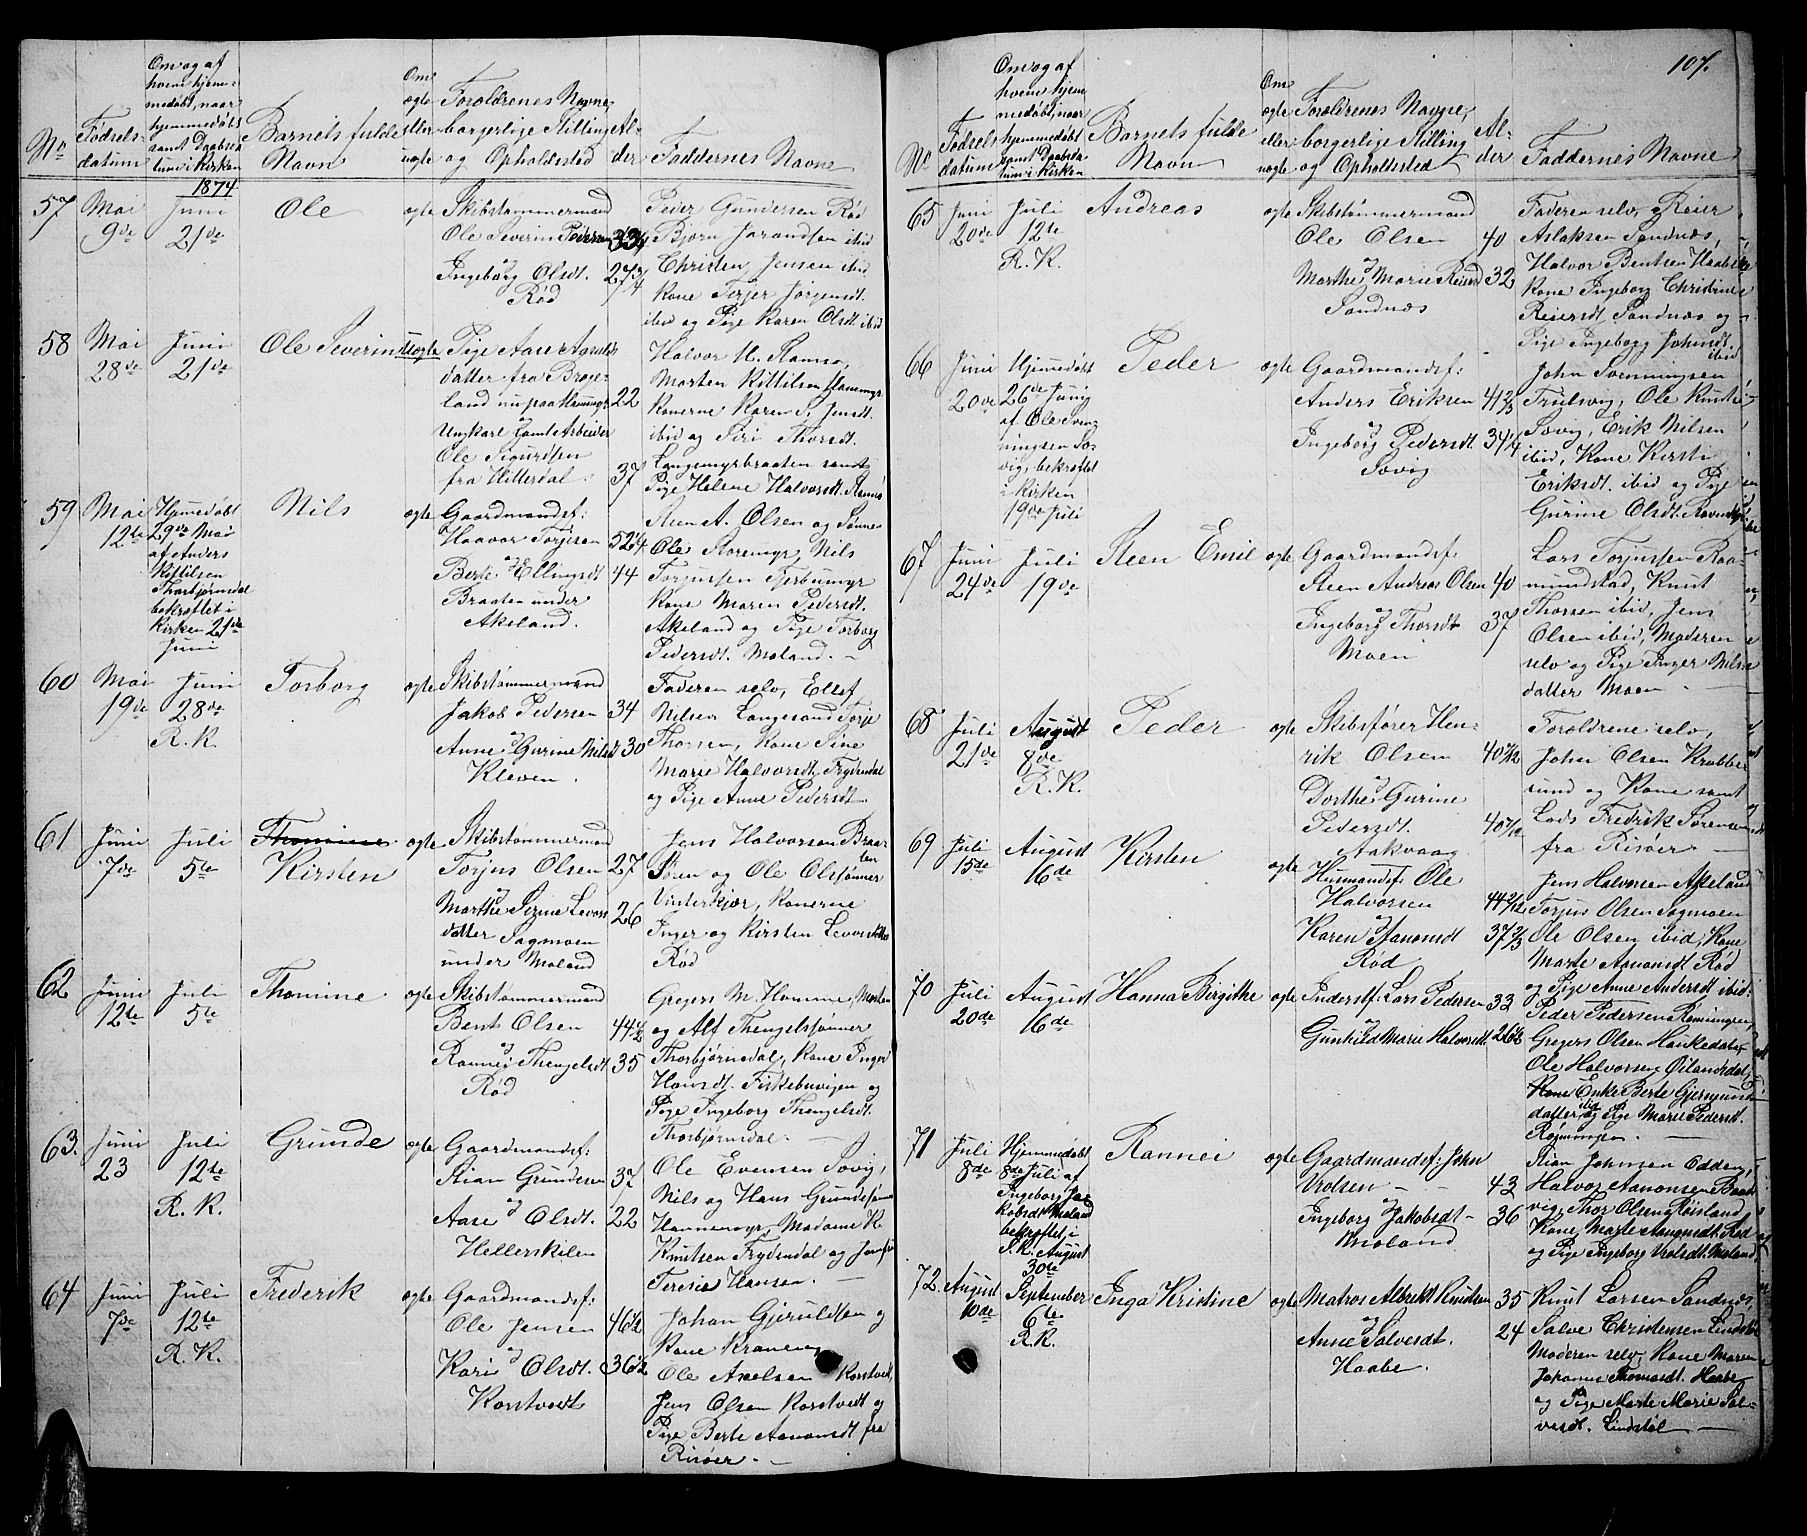 No
Fødsels-
datum
Om og af
hvem hjem-
medøbt, naar
hjemmedøbt
samt Daabsda-
tum i Kirken
Barnets fulde
Navn
Om
ægte
eller
uægte
Foræ­ldrenes Navne,
borgerlige Stilling
og Opholdsted
Al-
der
Faddernes Navne
1874
57
Mai
9de
Juni
21de
Ole
ægte
Skibstømmermand
Ole Severin Pedersen
og
Ingeborg Olsdt. 27 3/4
Rød
Peder Gundersen Rød
Bjørn Jorandsen ibid
Christen Jensen ibid
Kone Terjer Jørgensdt.
ibid og Pige Karen Olsdt. ibid
58
Mai
28de
Juni
21de
Ole Severin
uægte
Pige Aase Aanuls-
datter fra Brøje-
land nu paa 22
Ungkarl Arbeider
Ole Sigurdsen
fra Hitterdal. 37
Halvor H. Stamsø,
Morten Kittilsen
Konerne Karen S. Jensdt.
ibid og Siri Thorsdt.
Langemyrbraaten samt
Pige Helene Halvorsdt. Stamsø
59
Mai
12te
Hjemmedøbt
29de Mai
af Anders
Kittilsen
Thorbjørnsdal
bekræftet i
Kirken 21de
Juni
Nils
ægte
Gaardmandsf:
Haavor Torjesen 52 1/4
og
Berte Ellingsdt 44
Braaten under
Akeland.
Steen A. Olsen og Sønne
Ole Storemyr, Nils
Torjussen
Kone Maren Pedersdt.
Akeland og Pige Torborg
Pedersdt. Moland. —
60
Mai
19de
Juni
28de
R. K.
Torborg
ægte
Skibstømmermand
Jakob Pedersen 34
og
Anne Gurine Nilsdt 30
Kleven.
Faderen selv, Ellef
Nilsen Langesand Torje
Thorsen, Kone Sine
Marie Halvorsdt, Frydendal
og Pige Anne Pedersdt.
61
Juni
7de
Juli
5te
Thomine
Kirsten
ægte
Skibstømmermand
Torjus Olsen 27
og
Marthe Serine Levors
datter Sagmoen 26
under Moland
Jens Halvorsen Braa-
ten
Søren og Ole Olssønner
Vinterkjær, Konerne
Inger og Kirsten Levorsdatter
Rød
62
Juni
12te
Juli
5te
Thomine
ægte
Skibstømmermand
Bent Olsen 44 1/2
og
Rannei Thengelsdt 35
Rød
Gregers M. Homme, Morten
og Alf Thengelssønner
Thorbjørnsdal, Kone Inger
Hansdt. Fiskebuvigen og
Pige Ingeborg Thengelsdt.
Thorbjørnsdal. —
63.
Juni
23
Juli
12te
R. K.
Grunde
ægte
Gaardmandsf:
Stian Grundesen 37
og
Aase Olsdt. 22
Hellerskilen
Ole Evensen Søvig,
Nils og Hans Grundesønner
Hammemyr, Madame K.
Knutsen Frydendal og Jomfru
Teresie Hansen. —
64
Juni
7de
Juli
12te
R. K.
Frederik
ægte
Gaardmandsf:
Ole Jensen 46 1/2
og
Kari Olsdt. 36 1/2
Korstvedt
Johan Gjeruldsen og
Kone Kranen,
Ole Axelsen Korstvedt,
Jens Olsen Korstvedt og
Pige Berte Aanonsdt fra
Risøer. —
107.
No
Fødsels
datum
Om og af
hvem hjem
medøbt, naar
hjemmedøbt
samt Daabsda-
tum i Kirken
Barnets fulde
Navn
Om
ægte
eller
uægte
Forældrenes Navne,
borgerlige Stilling
og Opholdsted
Al-
der
Faddernes Navne
65
Juni
20de
Juli
12te
R. K.
Andreas
ægte
Skibstømmermand
Ole Olsen 40
og
Marthe Marie Reiersd 32
Sandnæs
Faderen selv, Reier
Aslaksen Sandnæs,
Halvor Bentsen
Kone Ingeborg Christine
Reiersdt Sandnæs og
Pige Ingeborg Johnsdt.
ibid
66
Juni
20de
Hjemmedøbt
26de Juni
af Ole Sven-
ningsen Sø-
vig, bekræftet
i Kirken
19de Juli
Peder
ægte
Gaardmandsf:
Anders Eriksen 41 2/3
og
Ingeborg Pedersdt. 34 1/4
Søvig
John Svenningsen
Trulsvig, Ole Knuts
Søvig, Erik Nilsen
ibid, Kone Kirsti
Eriksdt. ibid og Pige
Gurine Olsdt.
67
Juni
24de
Juli
19de
Steen Emil
ægte
Gaardmandsf:
Steen Andreas Olsen 40
og
Ingeborg Thorsdt 37
Moen
Lars Torjussen Raa-
mundstad, Knut
Thorsen ibid, Jens
Olsen ibid, Moderen
selv og Pige Inger Nils-
datter Moen. —
68
Juli
21de
August
8de
R. K.
Peder
ægte
Skibsfører Hen-
rik Olsen 40 7/12
og
Dorthe Gurine
Pedersdt. 40 7/12
Aakvaag
Forældrene selv,
John Olsen Krabbe-
sund og Kone samt
Lods Fredrik Sørensen
fra Risøer —
69
Juli
15de
August
16de
Kirsten
ægte
Husmandsf: Ole
Halvorsen 44 2/12
og
Karen Aanonsdt 37 2/3
Rød
Jens Halvorsen Akeland
Torjus Olsen Sagmoen
Ole Olsen ibid, Kone
Marte Aanonsdt Rød
og Pige Anne Andersdt ibid.
70
Juli
20de
August
16de
Hanna Birgithe
ægte
Inderstf: Lars Pedersen 33
og
Gunhild Marie Halvorsdt. 26 1/2
Peder Pedersen Røiningen,
Gregers Olsen Haukedalen
Ole Halvorsen Øilandsdal,
Kone Enke Berte Gjermunds
datter ibid og Pige Marie Pedersdt.
Røiningen. —
71
Juli
8de
Hjemmedøbt
8de Juli af
Ingeborg Ja-
kobsdt Moland
bekræftet i
S. K. August
30te
Rannei
ægte
Gaardmandsf: John
Vrolsen — — 43
Ingeborg Jakobsdt — 36
Moland
Stian Johnsen Eddeng,
Halvor Aanonsen
vig, Thor Olsen Røisland,
Kone Marte Aanonsdt. Rød
og Pige Ingeborg Vrolsdt. Moland
72.
August
10de
September
6te
R. K.
Inga Kristine
ægte
Matros Albrekt Knutsen 35
og
Anne Salvesdt. 24
Haabe.
Knut Larsen Sandnæs,
Salve Christensen Lindstøl
Moderen selv, Kone Maren
Johanne Thomasdt. Haabe
og Pige Marte Marie Sal-
vesdt. Lindstøl —